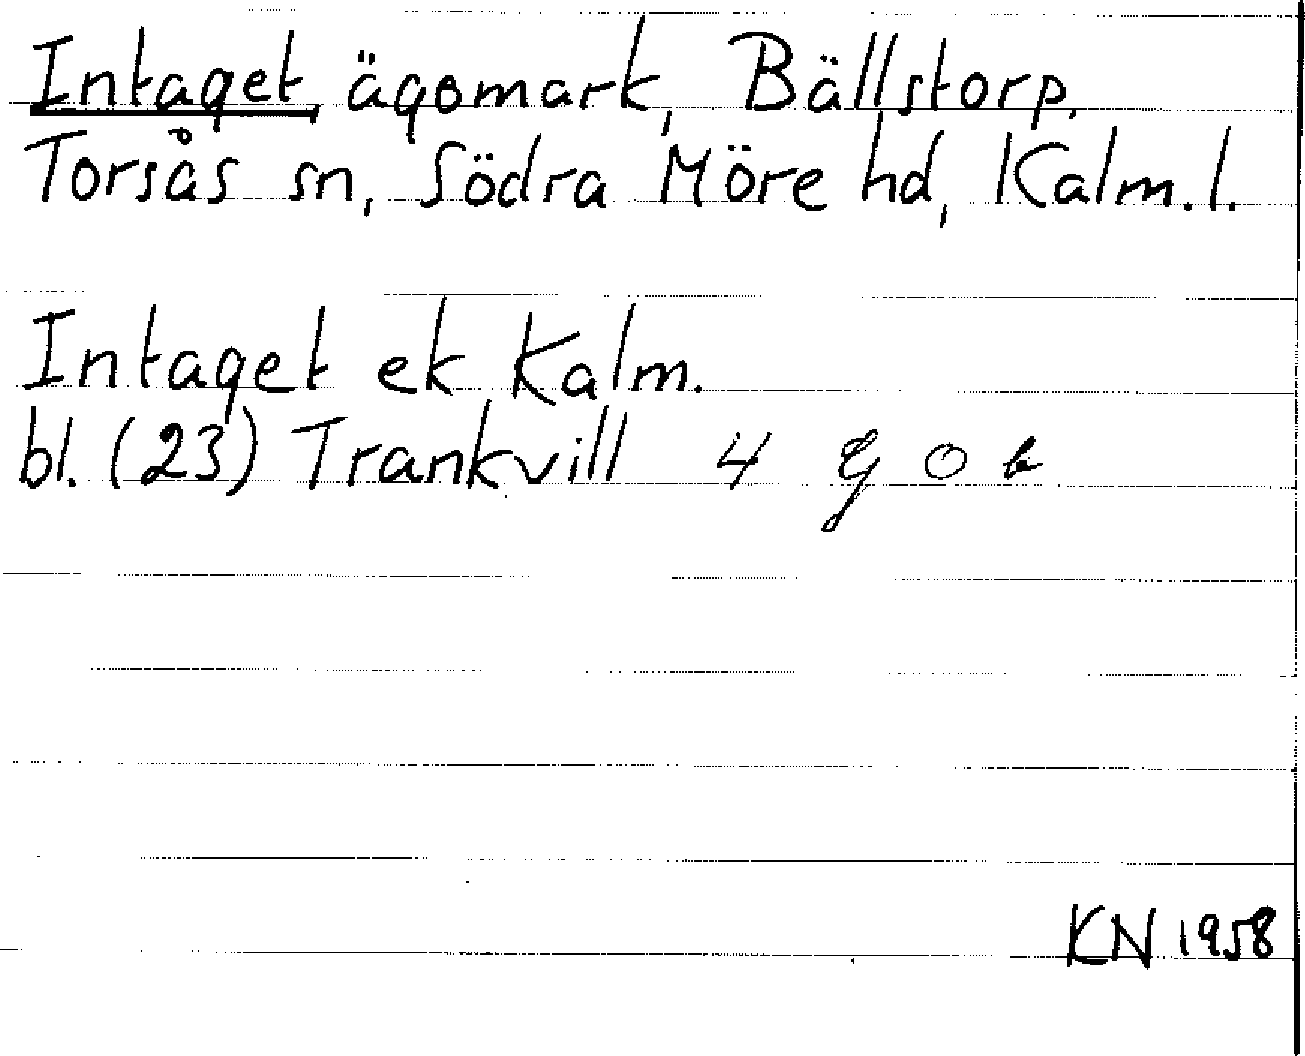 Intaget, ägomark, Bällstorp,
Torsås sn, Södra Möre hd, Kalm. l.
Intaget ek Kalm.
bl. (23) Trankvill 4 g o b
KN 1958